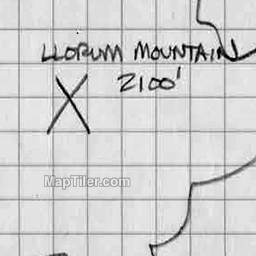 LLORUM MOUNTAIN
2100'
MapTiler.com